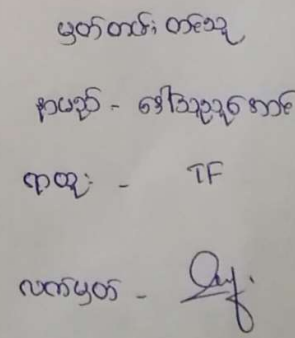 မှတ်တမ်းတင်သူ
နာမည် - ဒေါ်သူသူအောင်
ရာထူး - TF
လက်မှတ် -